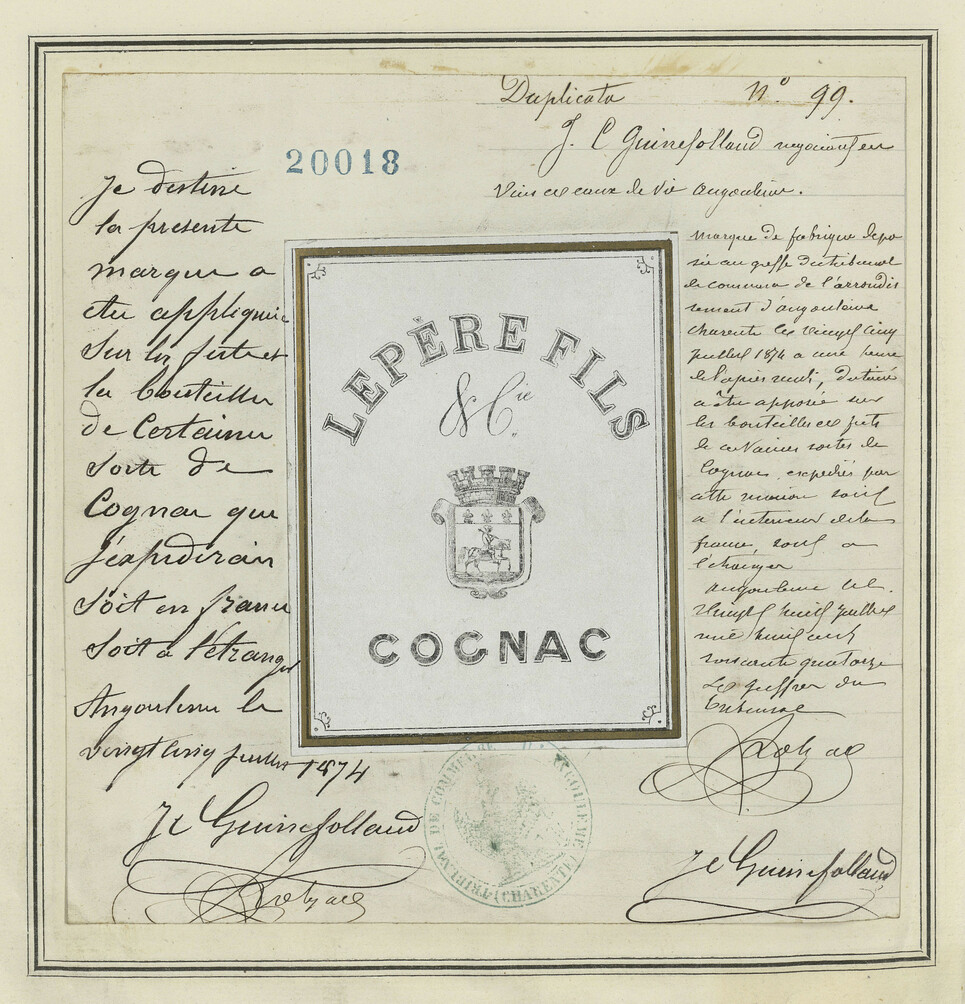 Duplicata N° 99.
J. C Guinefolland negociant en
vins et eaux de vie angoulême.
20018
Je destine
la presente
marque a
etre appliquée
sur les futs et
les bouteilles
de certaines
sorte de
Cognac que
j'expedirai
soit en france
soit a l'etranger
Angouleme le
vingt cinq juillet 1874
JC Guinefolland
LEPÈRE FILS
& Cie
COGNAC
marque de fabrique depo
sée au greffe du tribunal
de commerce de l'arrondis
sement d'angouleme
charente le vingt cinq
juillet 1874 a une heure
de l'apres midi, destinée
a être apposée sur
les bouteilles et futs
de certaines sortes de
Cognac expediés par
cette maison soit
a l'interieur de la
france, soit a
l'etranger
angouleme le
vingt huit juillet
mil huit cent
soixante quatorze
Le greffier du
tribunal
JC Guinefolland
TRIBUNAL DE COMMERCE D'ANGOULEME (CHARENTE)